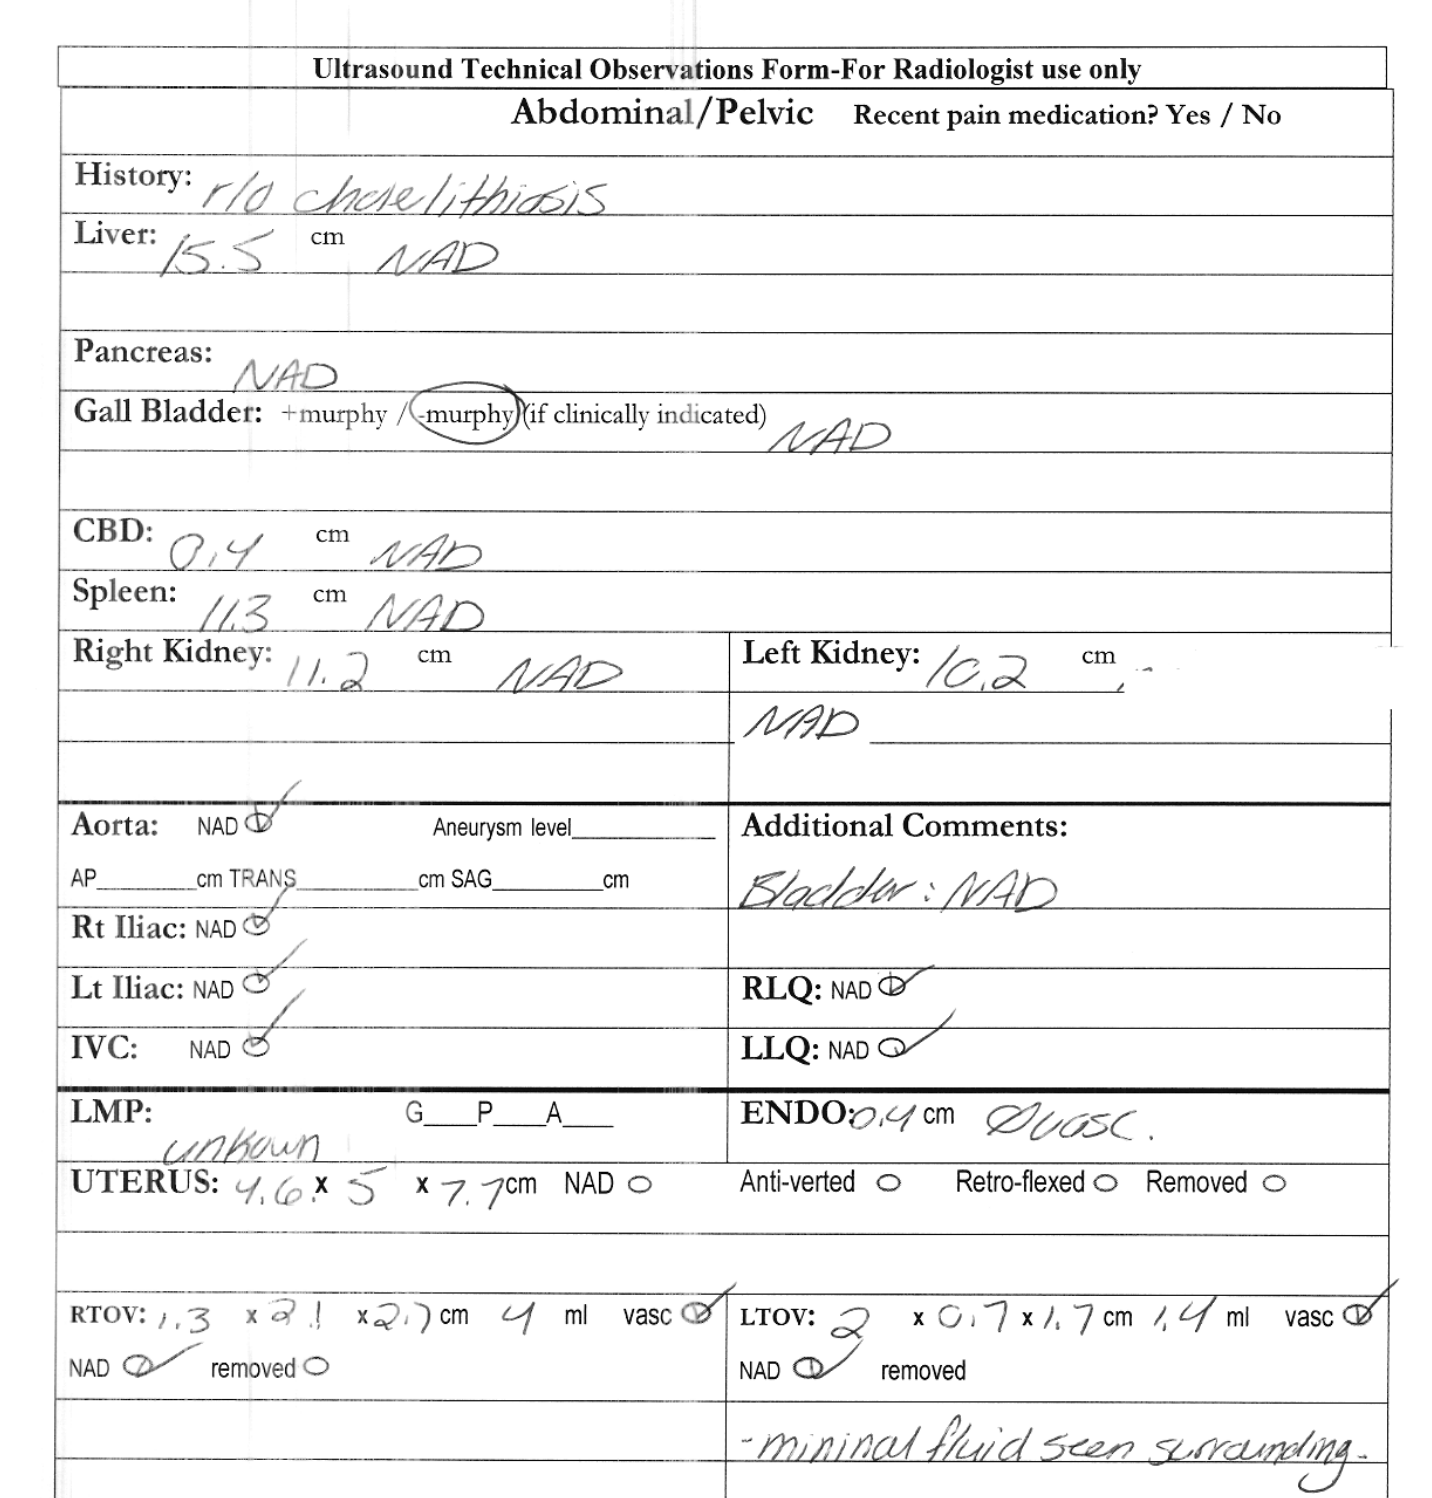 Ultrasound Technical Observations Form-For Radiologist use only
Abdominal/Pelvic Recent pain medication? Yes / No
History: r/o cholelithiosis
Liver: 15.5 cm NAD
Pancreas: NAD
Gall Bladder: +murphy / -murphy (if clinically indicated) NAD
CBD: 0.4 cm NAD
Spleen: 11.3 cm NAD
Right Kidney: 11.2 cm NAD
Left Kidney: 10.2 cm
NAD
Aorta: NAD Aneurysm level
AP cm TRANS cm SAG cm
Additional Comments:
Bladder: NAD
Rt Iliac: NAD
Lt Iliac: NAD
RLQ: NAD
IVC: NAD
LLQ: NAD
LMP: unkown G P A
ENDO: 0.4 cm Ø vasc.
UTERUS: 4.6 x 5 x 7.7 cm NAD Anti-verted Retro-flexed Removed
RTOV: 1.3 x 2.1 x 2.7 cm 4 ml vasc
NAD removed
LTOV: 2 x 0.7 x 1.7 cm 1.4 ml vasc
NAD removed
- mininal fluid seen surrounding.